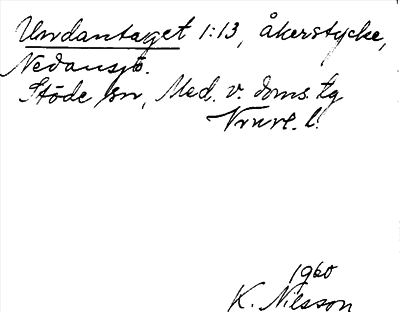 Undantaget 1:13, åkerstycke,
Nedansjö.
Stöde sn, Med. v. doms. tg
Vnrl. l.
1960
K. Nilsson